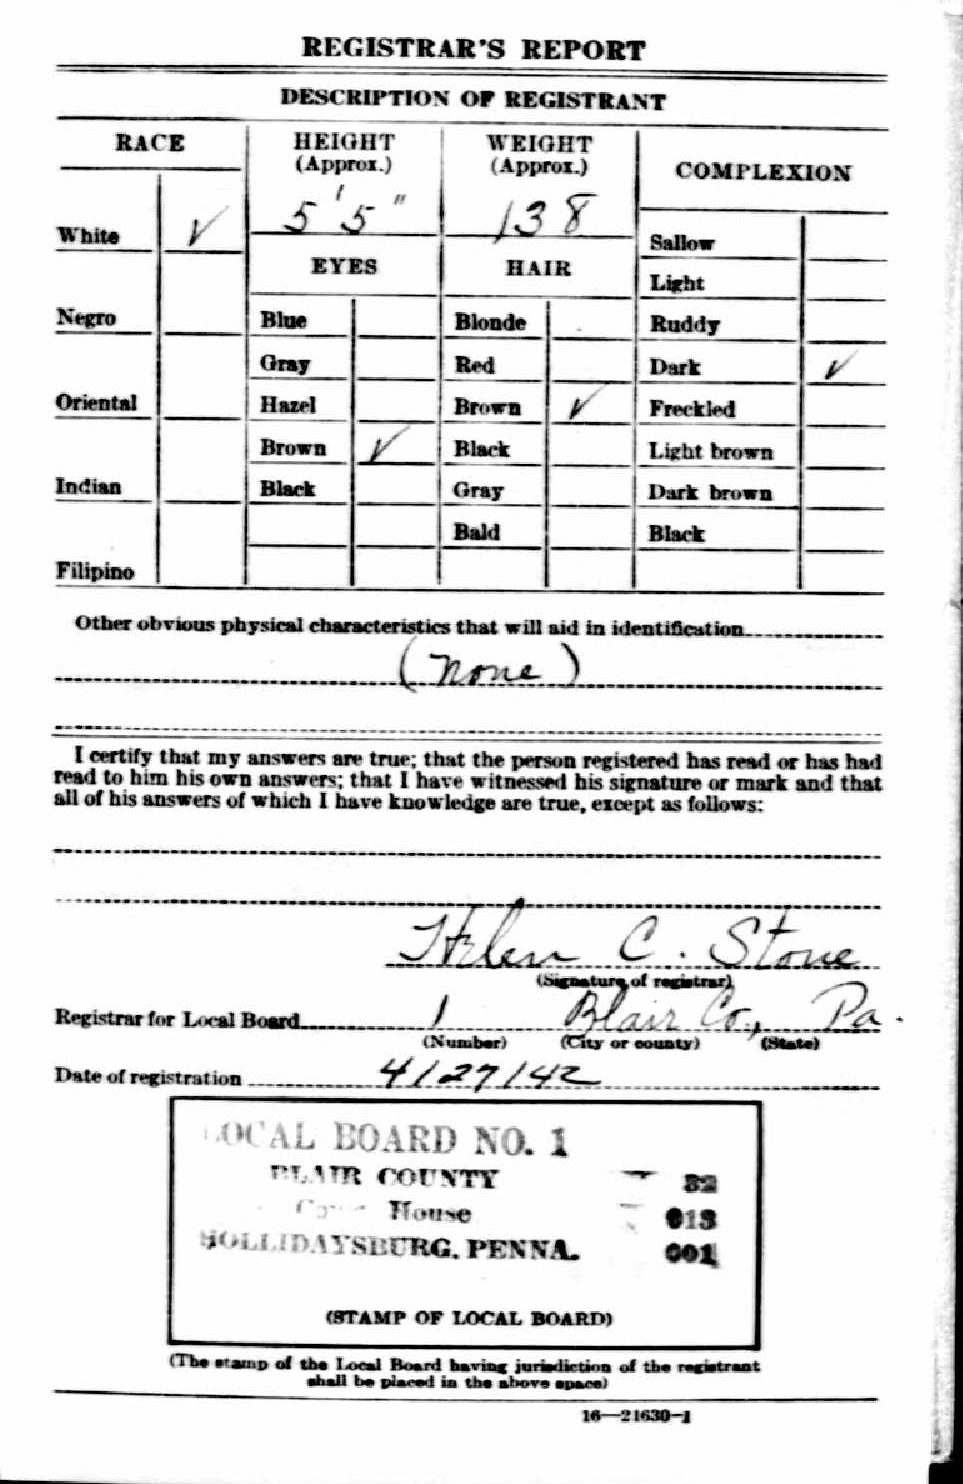 REGISTRAR'S REPORT
DESCRIPTION OF REGISTRANT
RACE
HEIGHT
(Approx.)
WEIGHT
(Approx.)
COMPLEXION
5' 5"
138
White ✓
Negro
Oriental
Indian
Filipino
EYES
Blue
Gray
Hazel
Brown ✓
Black
HAIR
Blonde
Red
Brown ✓
Black
Gray
Bald
Sallow
Light
Ruddy
Dark ✓
Freckled
Light brown
Dark brown
Black
Other obvious physical characteristics that will aid in identification
(None)
I certify that my answers are true; that the person registered has read or has had
read to him his own answers; that I have witnessed his signature or mark and that
all of his answers of which I have knowledge are true, except as follows:
Helen C. Stone
(Signature of registrar)
Registrar for Local Board 1 Blair Co., Pa.
(Number) (City or county) (State)
Date of registration 4/27/42
LOCAL BOARD NO. 1
BLAIR COUNTY 32
House 013
HOLLIDAYSBURG, PENNA. 001
(STAMP OF LOCAL BOARD)
(The stamp of the Local Board having jurisdiction of the registrant
shall be placed in the above space)
16—21630-1